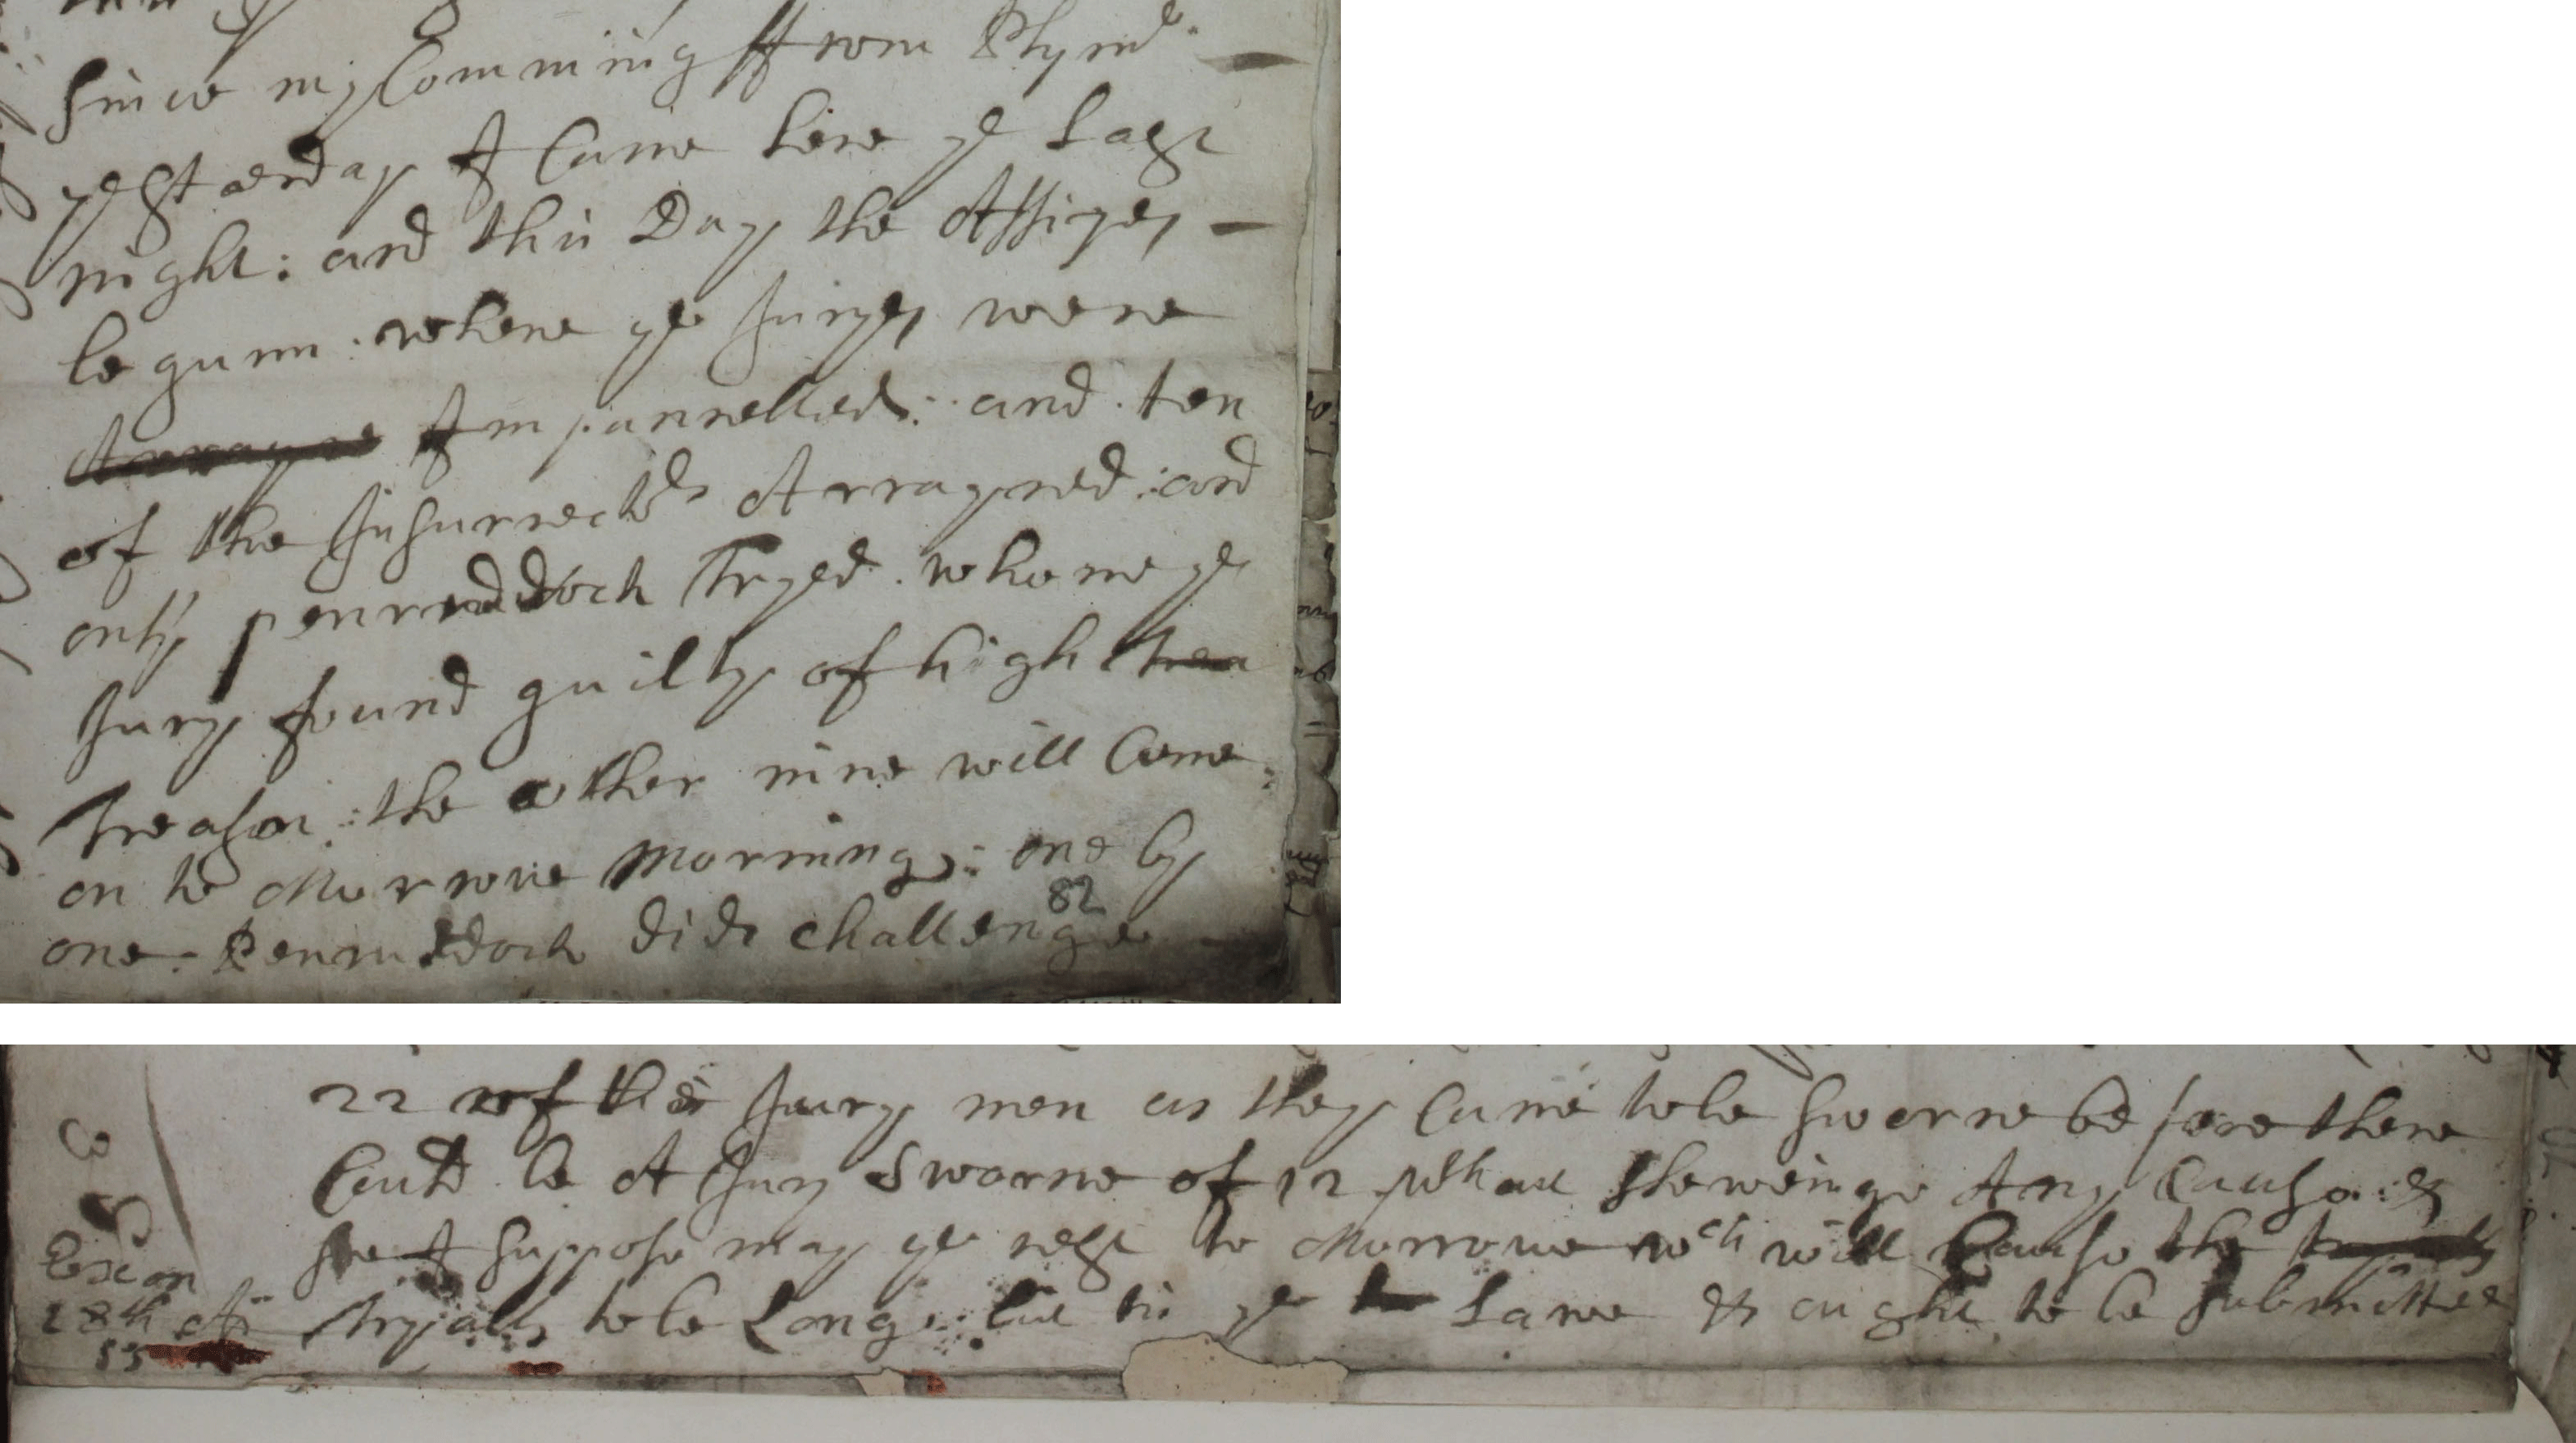 since my Comming ffrom Plymo
yesterday I Came here ye Last
night: and this Day the Assizes
begunn: where ye Juryes were
Arrayne Impannelled: and ten
of the Insurrectors Arrayned: and
only penruddock Tryed. whome ye
Jury found guilty of high trea
treason: the other nine will Come
on to Morrowe Morning: one by
82
one: Penruddock did challenge
22 of the Jury men as they Came to be sworne before there
Could be A Jury Sworne of 12 without shewinge Any Cause: &
soe I suppose may ye rest to Morrowe wch will Cause the
Exon
28th
55
tryalls to be Long: but tis ye Lawe & ought to be submitted